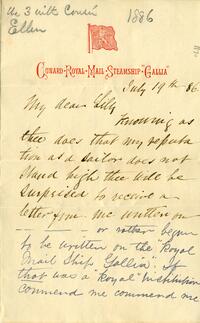 We 3 with Cousin
Ellen
1886
CUNARD ROYAL MAIL STEAMSHIP "GALLIA"
July 19th 86
My dear Lilly
Knowing as
thee does that my reputa
tion as a sailor does not
stand high thee will be
surprised to receive a
letter from me written on
or rather begun
to be written on the "Royal
Mail Ship Gallia". If
that was a "Royal" Institution
commend me commend me